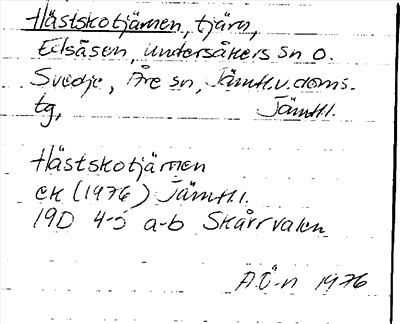 Hästskotjärnen, tjärn,
Edsåsen, Undersåkers sn o.
Svedje, Åre sn, Jämtl.v.doms.
tg, Jämtl.
Hästskotjärnen
ek (1976) Jämtl.
19D 4-5 a-b Skårrvalen
A.Ö-n 1976